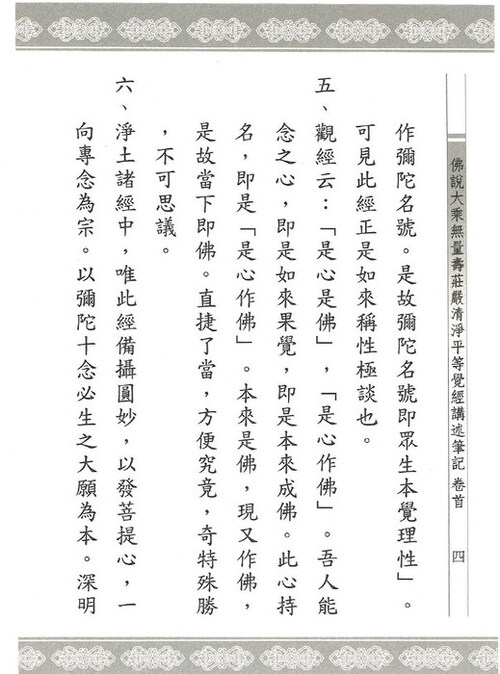 佛說大乘無量壽莊嚴清淨平等覺經講述筆記 卷首 四
作彌陀名號。是故彌陀名號即眾生本覺理性」。
可見此經正是如來稱性極談也。
五、觀經云：「是心是佛」，「是心作佛」。吾人能
念之心，即是如來果覺，即是本來成佛。此心持
名，即是「是心作佛」。本來是佛，現又作佛，
是故當下即佛。直捷了當，方便究竟，奇特殊勝
，不可思議。
六、淨土諸經中，唯此經備攝圓妙，以發菩提心，一
向專念為宗。以彌陀十念必生之大願為本。深明